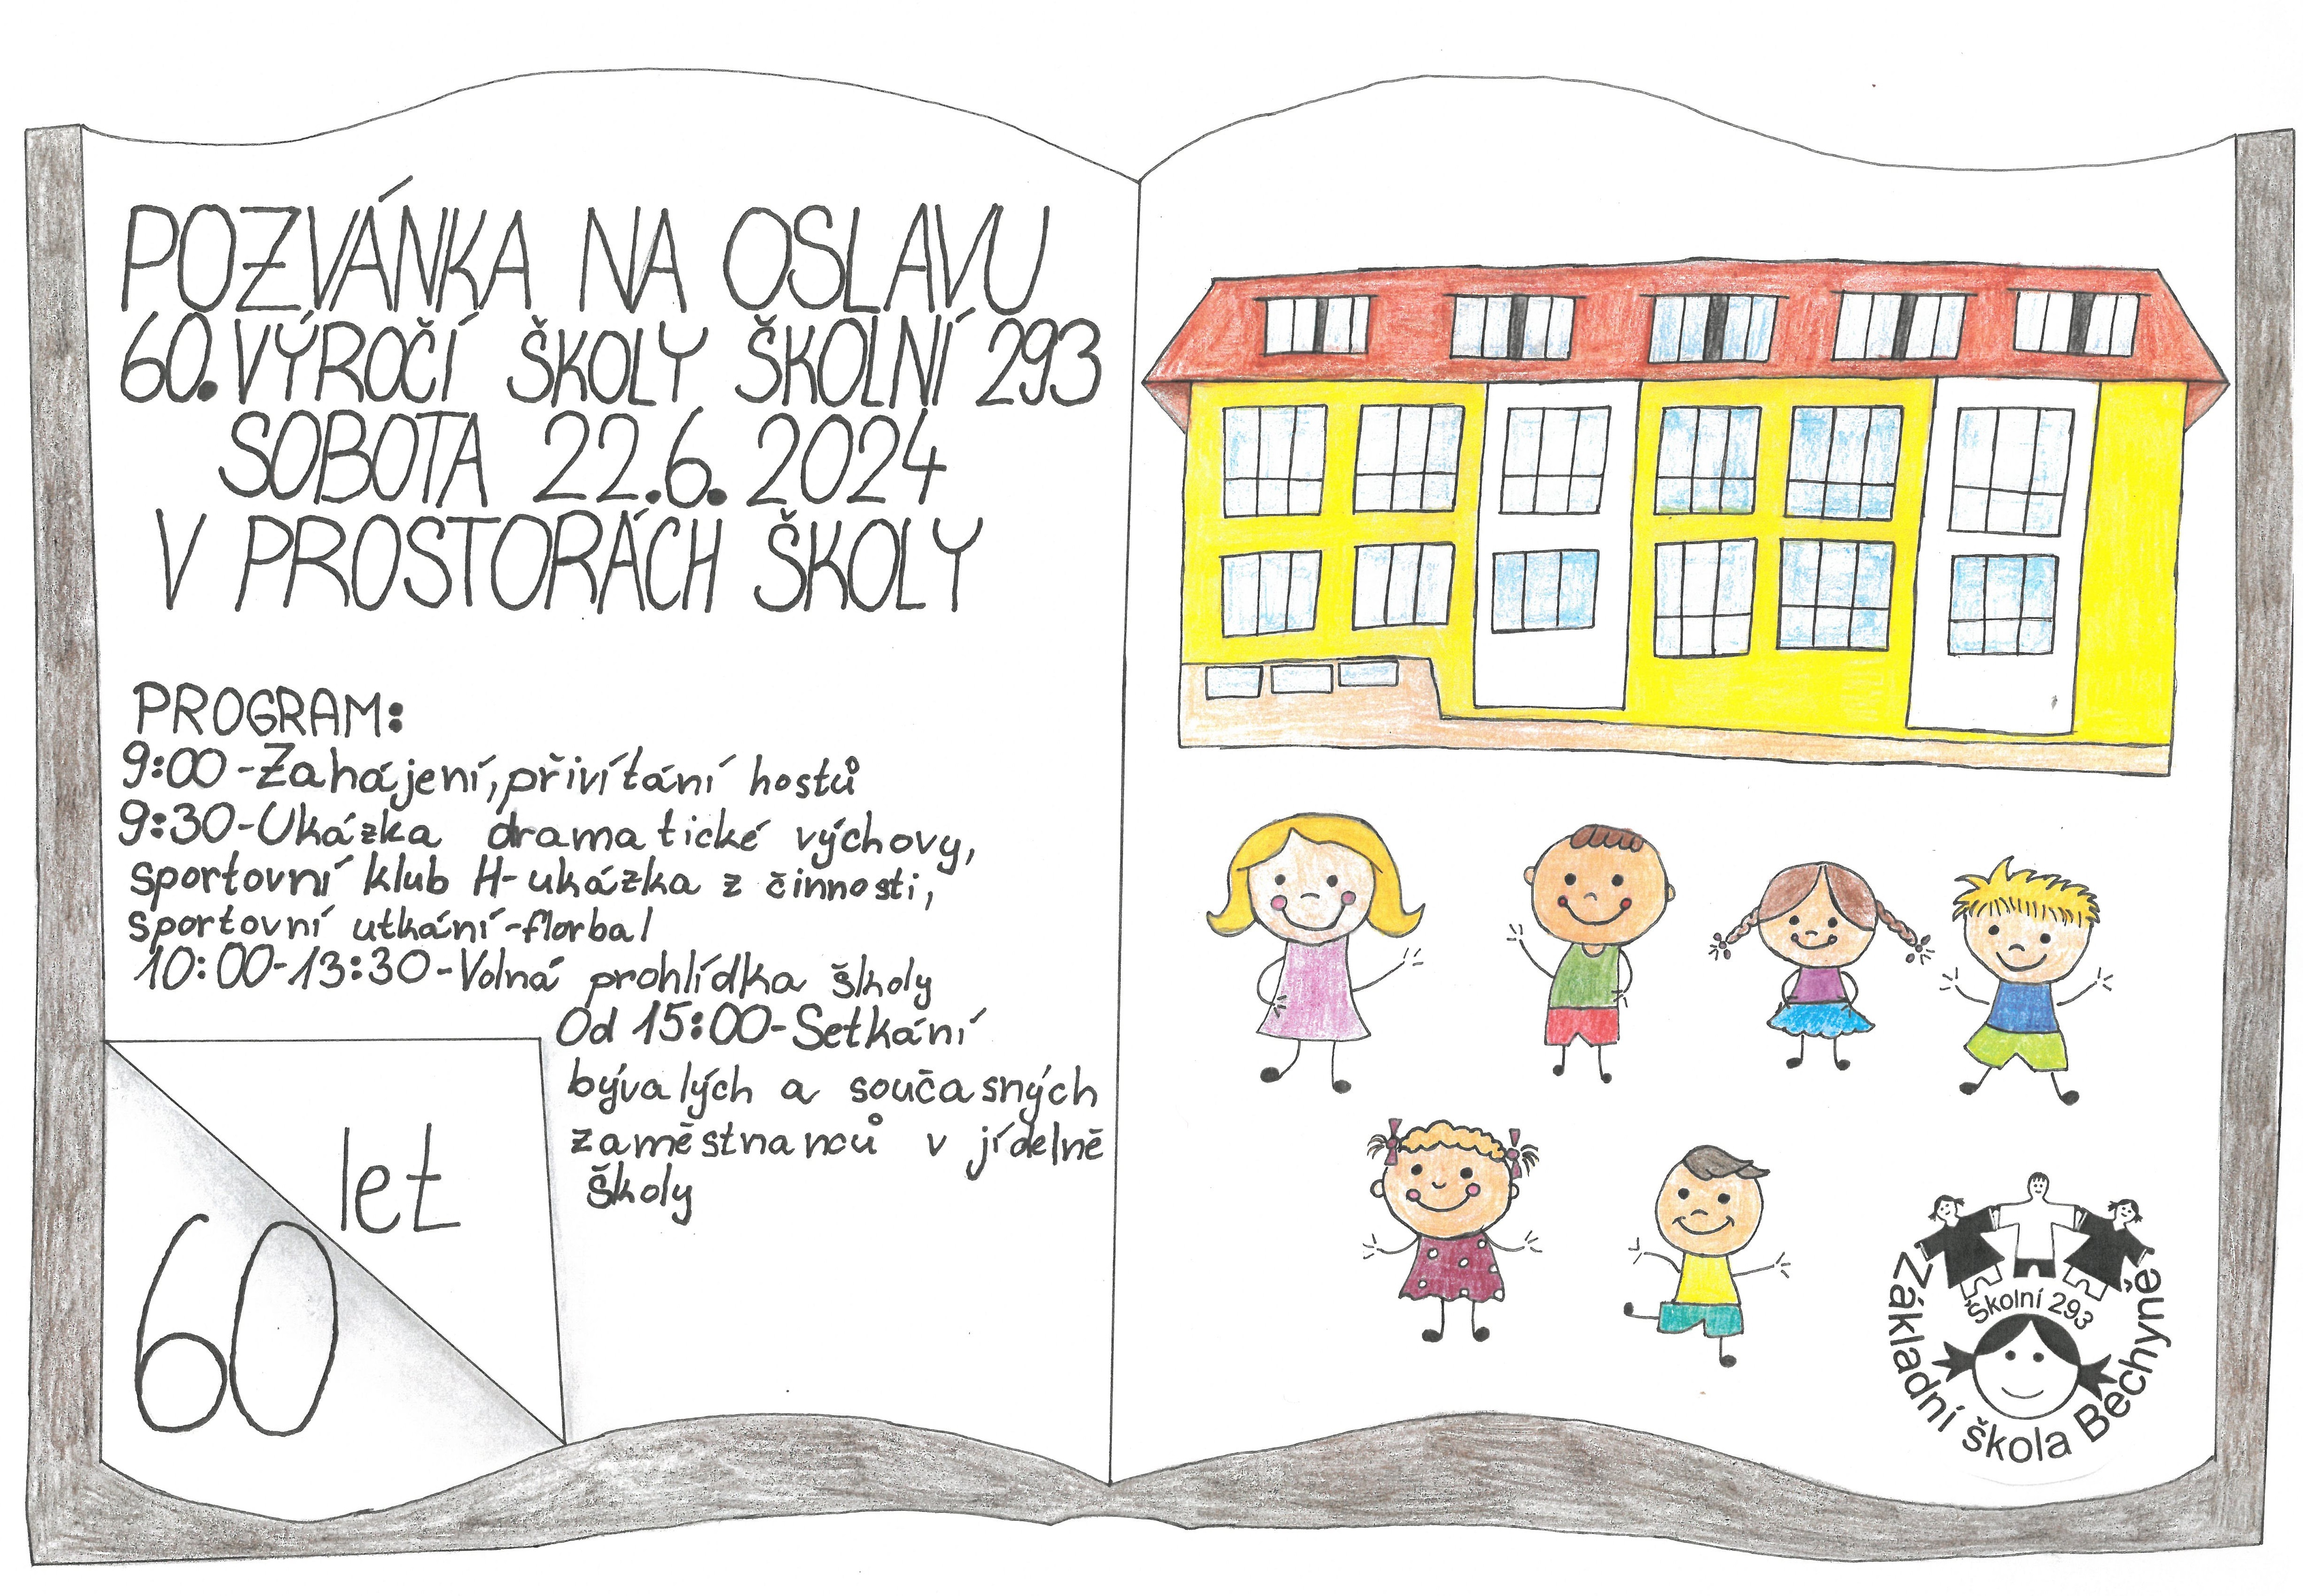 POZVÁNKA NA OSLAVU
60. VÝROČÍ ŠKOLY ŠKOLNÍ 293
SOBOTA 22.6.2024
V PROSTORÁCH ŠKOLY
PROGRAM:
9:00-Zahájení, přivítání hostů
9:30-Ukázka dramatické výchovy,
sportovní klub H-ukázka z činnosti,
sportovní utkání-florbal
10:00-13:30-Volná prohlídka školy
Od 15:00-Setkání
bývalých a současných
zaměstnanců v jídelně
školy
let
60
Školní 293
Základní škola Bechyně